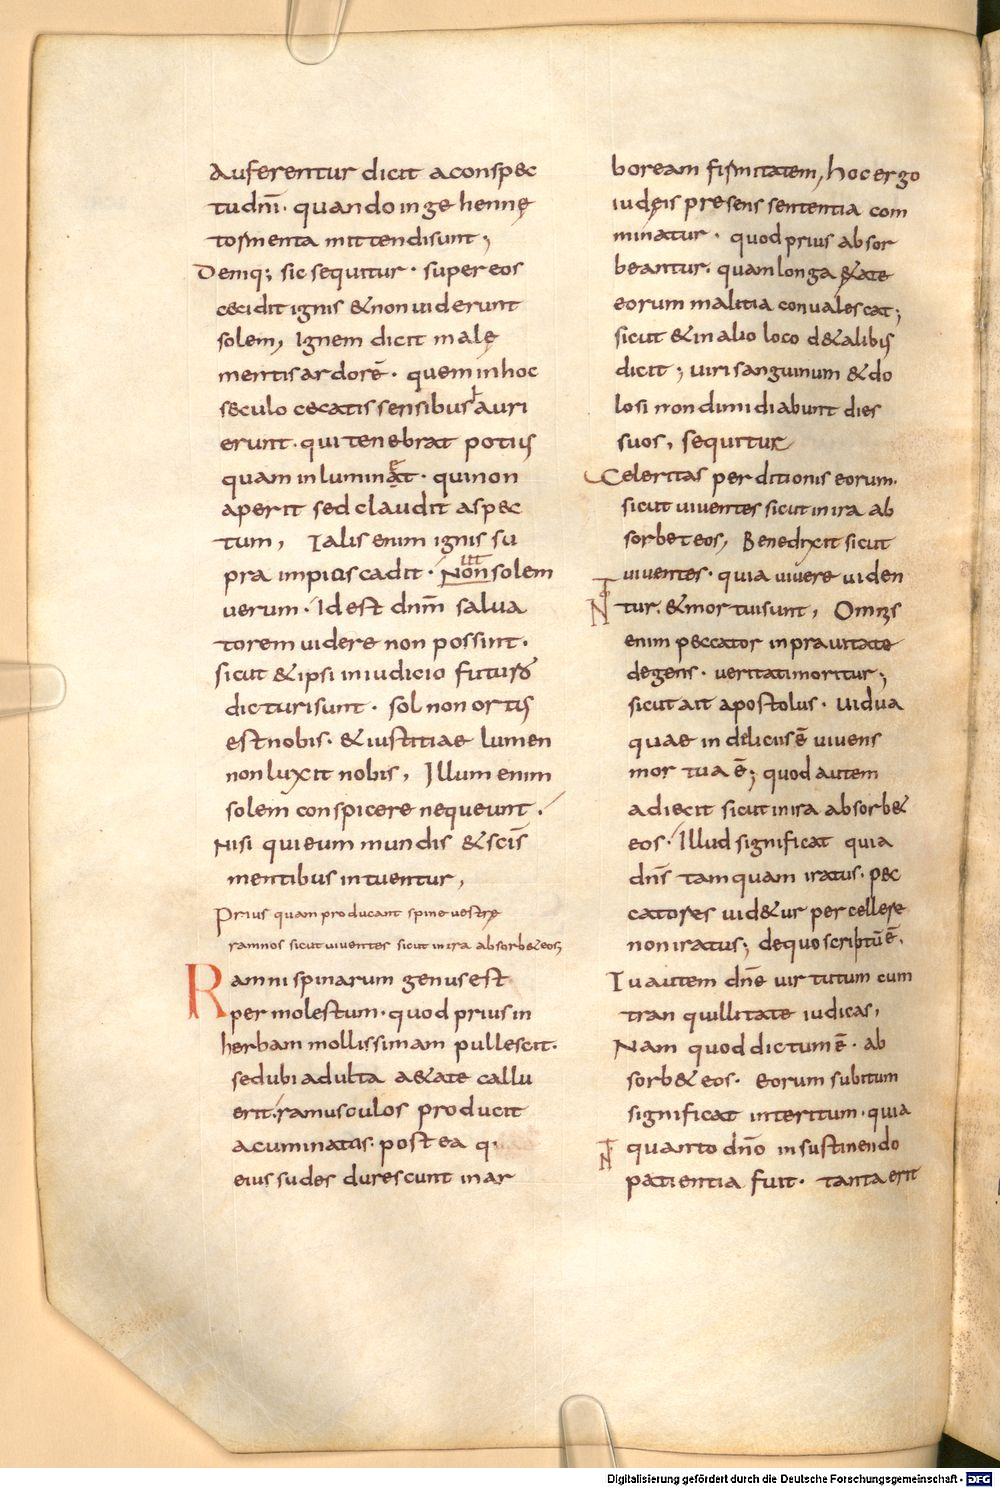 Auferentur dicit aconspec
tudnī· quandoingehennę
tormenta mittendisunt;
Demq; sic sequitur· supereos
cecidit ignis &nonuiderunt
solem, Ignem dicit malę
mentisardorē· queminhoc
seculo cecatis sensibus auri
erunt· quitenebrat potius
quam inluminat· quinon
aperit sed claudit aspec
tum, Talis enim ignis su
pra impiuscadit· Non solem
uerum· Idest dnm̄ salua
torem uidere non possunt·
sicut &ipsi iniudicio futuro
dicturisunt· sol non ortus
estnobis· &iustitiae lumen
nonluxit nobis, Illum enim
solem conspicere nequeunt·
Nisi quieum mundis &scīs
mentibus intuentur,
Prius quam producant spine uestrę
ramnos sicut uiuentes sicut in ira absorb&eos;
Ramni spinarum genus est
permolestum· quod prius in
herbam mollissimam pullescit·
sedubiadulta a&ate callu
erit· ramusculos producit
acuminatas· postea q·
eius sudes durescunt inar
boream firmitatem, hoc ergo
iudęis presens sententia com
minatur· quod prius absor
beantur· quam longa &ate
eorum malitia conualescat;
sicut &inalio loco d&alibus
dicit; uiri sanguinum &do
losi non dimidiabunt dies
suos, sequitur
Celeritas perditionis eorum·
sicut uiuentes sicut in ira ab
sorbeteos, Benedixit sicut
uiuentes· quia uiuere uiden
tur· &mortuisunt, Omnis
enim peccator inprauitate
degens· ueritatimoritur;
sicut ait apostolus· Uidua
quae in deliciis ē uiuens
mortua ē; quod autem
adiecit sicut in ira absorb&
eos· Illud significat quia
dn̄s tamquam iratus· pec
catores uid&ur percellere
noniratus; dequo scriptū ē·
Tu autem dnē uirtutum cum
tranquillitate iudicas,
Nam quod dictum ē· ab
sorb& eos· eorum subitum
significat interitum· quia
quanto dnō insustinendo
patientia fuit· tanta erit
Digitalisierung gefördert durch die Deutsche Forschungsgemeinschaft - DFG